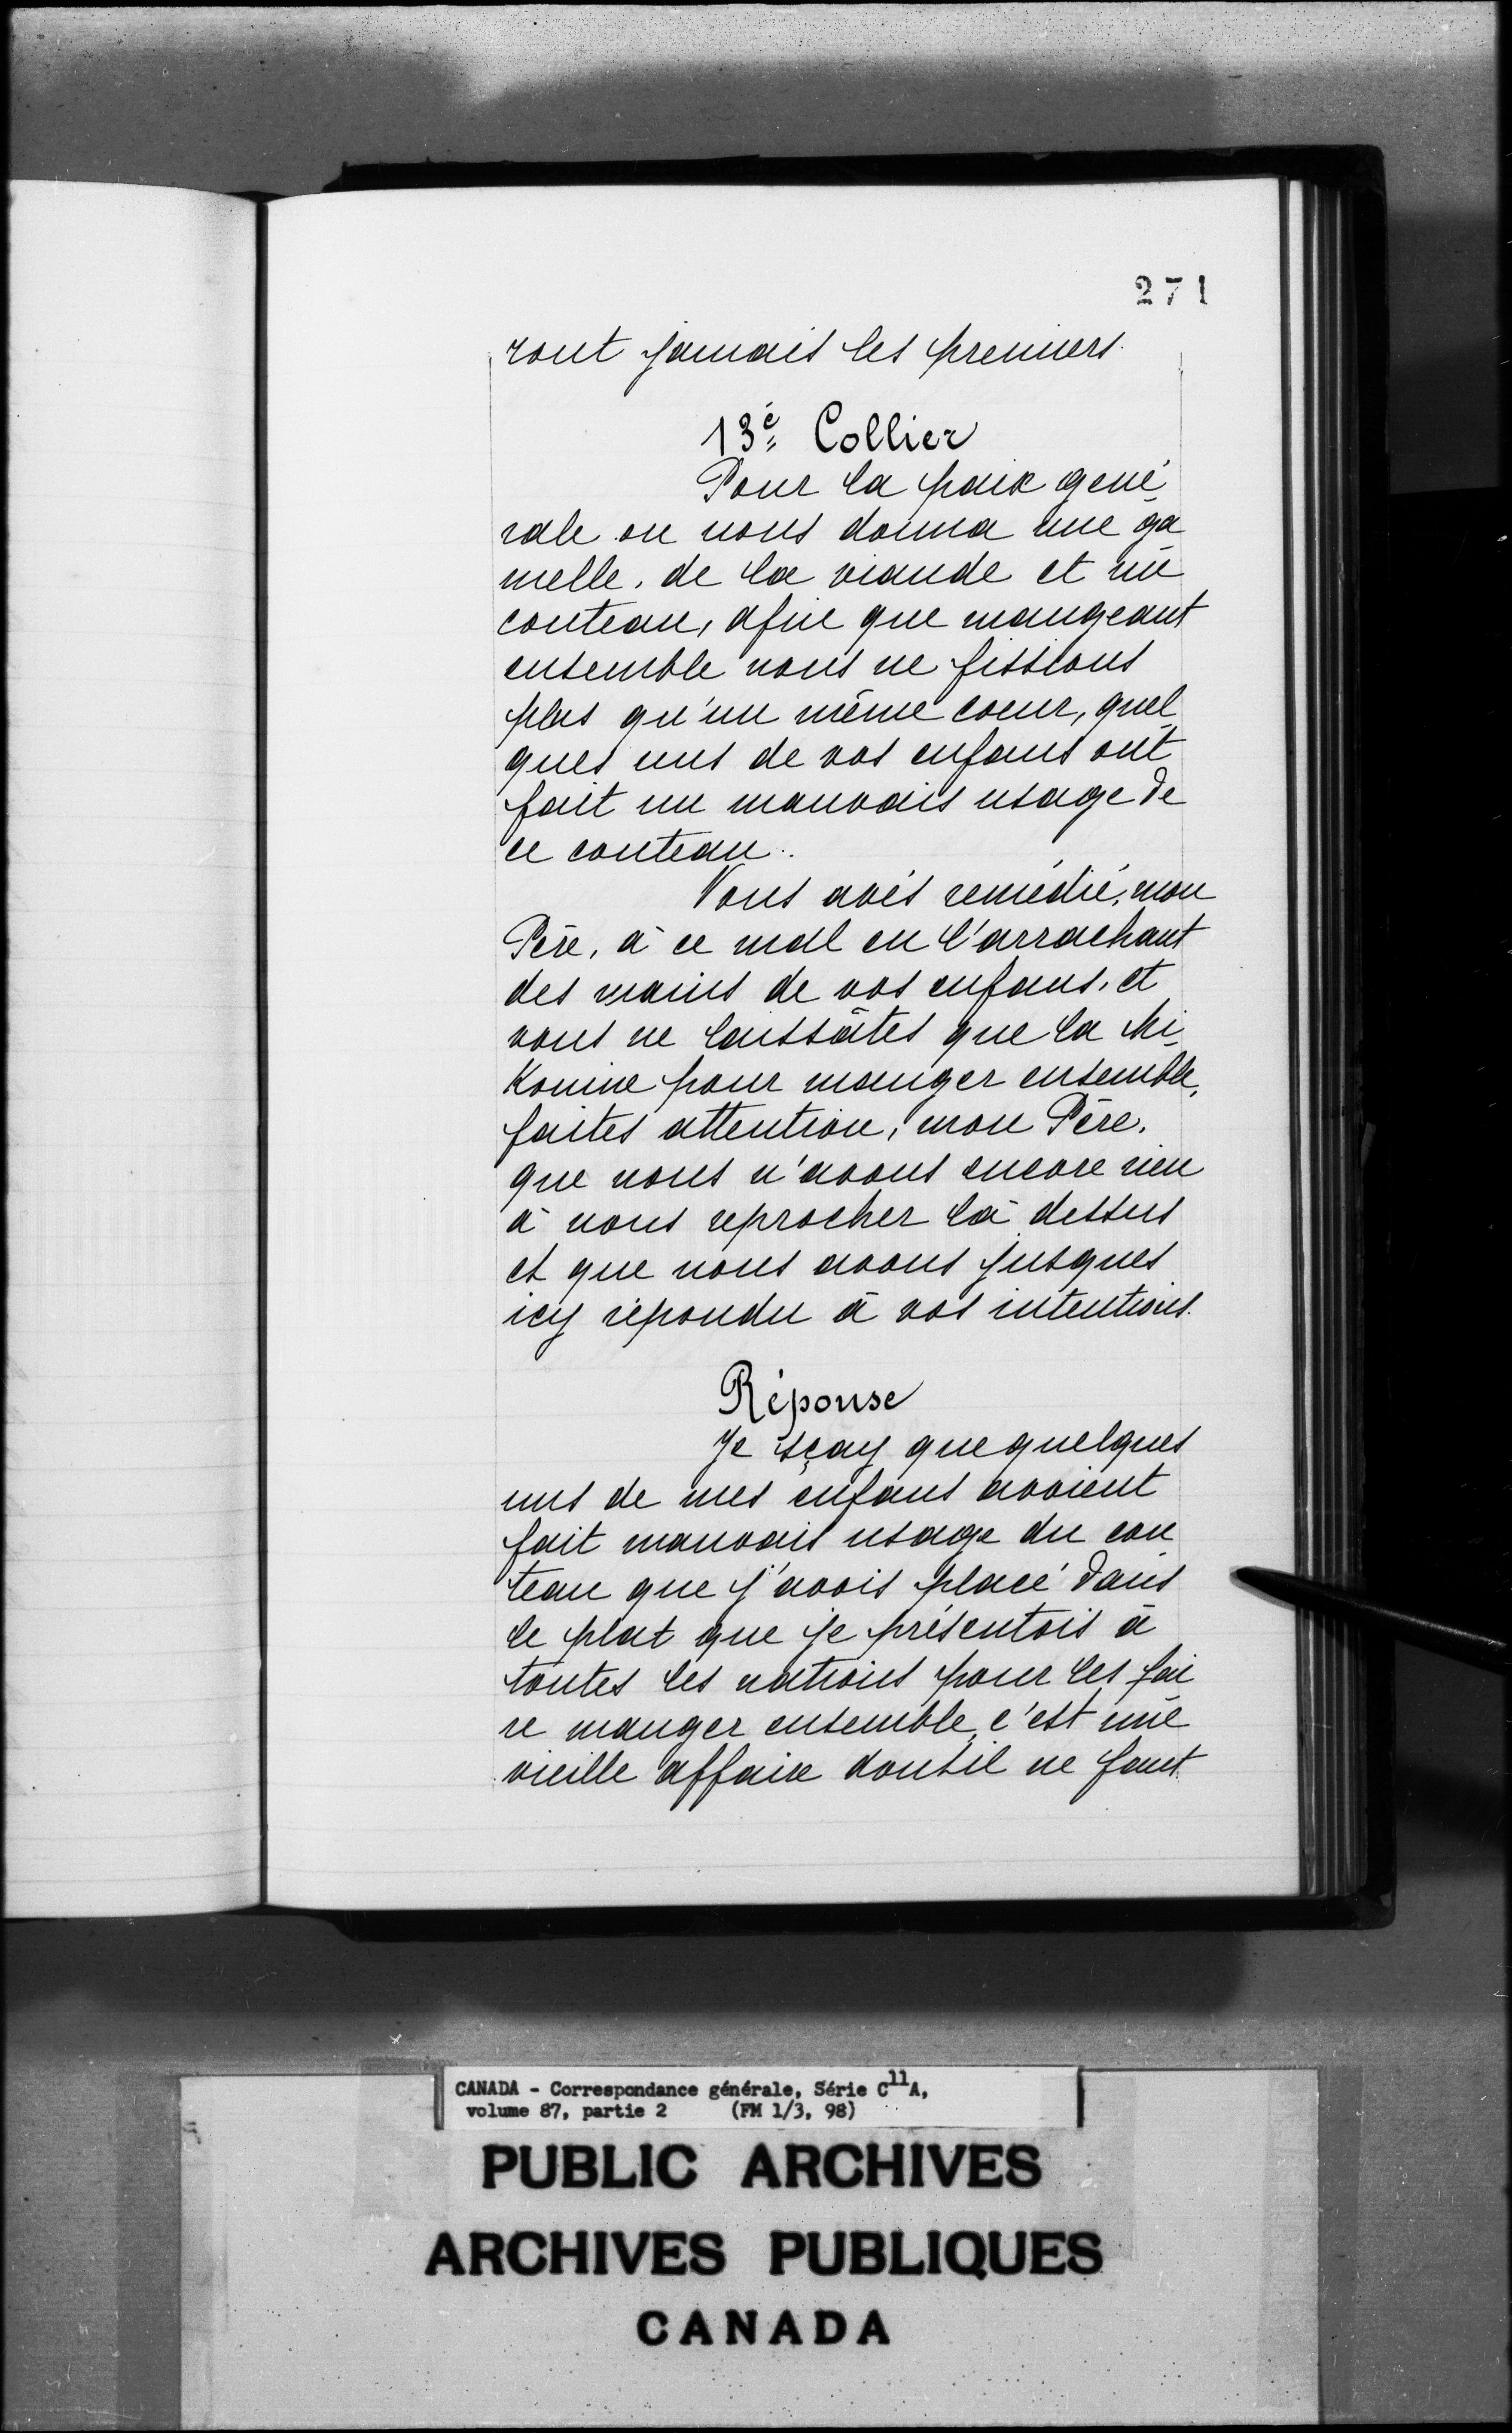 271
ront jamais les premiers.
13e Collier
Pour la paix gené
rale on nous donna une ga
melle, de la viande et un
couteau, afin que mangeant
ensemble nous ne fissions
plus qu'un même coeur, quel
ques uns de vos enfans ont
fait un mauvais usage de
ce couteau.
Vous avés remédié, mon
Père, à ce mal en l'arrachant
des mains de vos enfans, et
vous ne laissâtes que la Mi
Konine pour manger ensemble,
faites attention, mon Père,
que nous n'avons encore rien
à nous reprocher là dessus
et que nous avons jusques
icy répondu à vos intentions.
Réponse
Je sçay que quelques
uns de mes enfans avoient
fait mauvais usage du cou
teau que j'avois placé dans
le plat que je présentois à
toutes les nations pour les fai
re manger ensemble, c'est une
vieille affaire dont il ne faut
CANADA - Correspondance générale, Série C11A,
volume 87, partie 2 (FM 1/3, 98)
PUBLIC ARCHIVES
ARCHIVES PUBLIQUES
CANADA